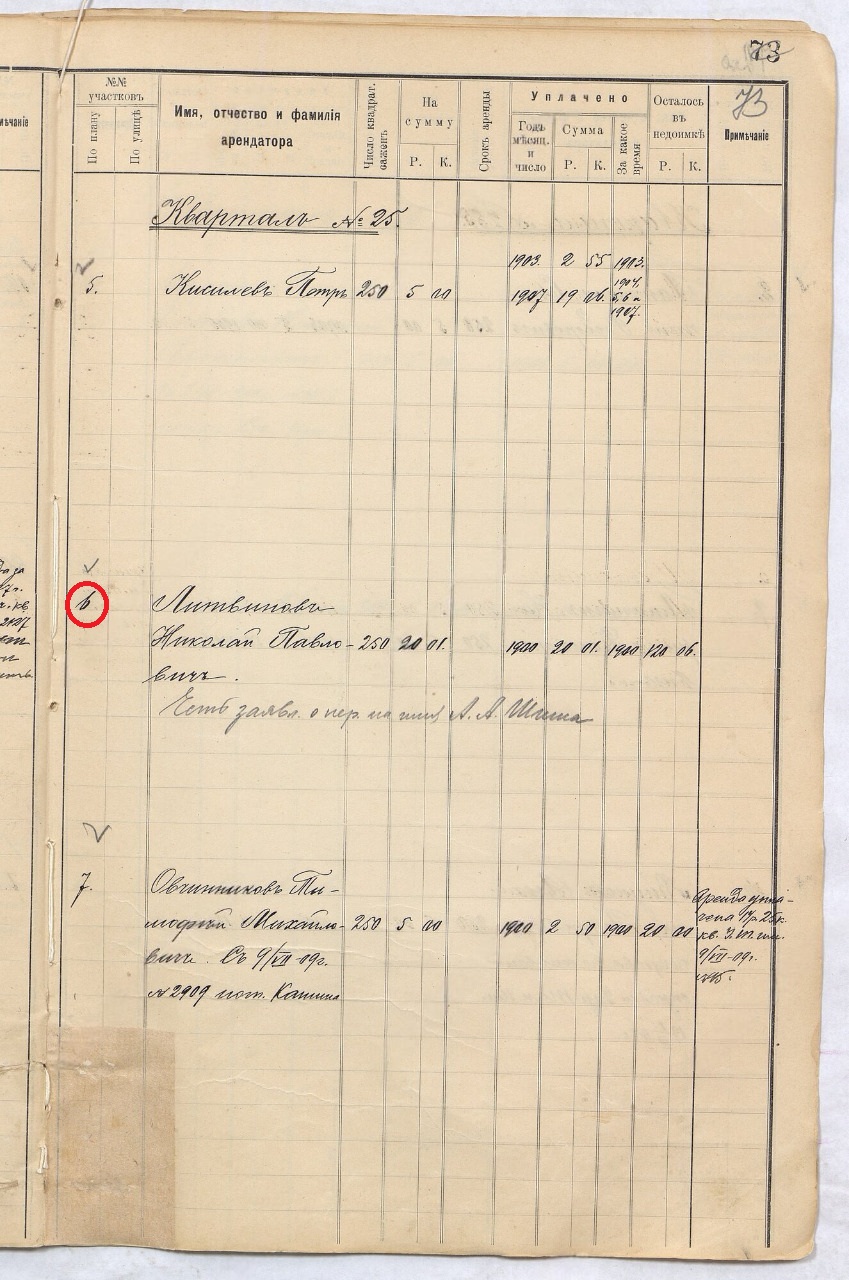 73
73
№№ участковъ
По плану
По улицѣ
Имя, отчество и фамилія арендатора
Число квадрат. сажен.
На сумму
Р. К.
Срокъ аренды
Уплачено
Годъ мѣсяц. и число
Сумма
Р. К.
За какое время
Осталось въ недоимкѣ
Р. К.
Примѣчаніе
Кварталъ № 25.
1903. 2 55 1903.
5. Киселевъ Петръ 250 5 00 1907 19 06. 1904. 5, 6 и 1907.
6 Литвиновъ
Николай Павло- 250 20 01. 1900 20 01. 1900 120 06.
вичъ.
Есть заявл. о пер. на имя А. А. Шина
7. Овчинниковъ Ти-
мофей Михайло- 250 5 00 1900 2 50 1900 20 00
вичъ. Съ 9/VII-09г.
№ 2909 пот. Канина
Аренда упла-
чена 17р 25к.
9/VII-09г.